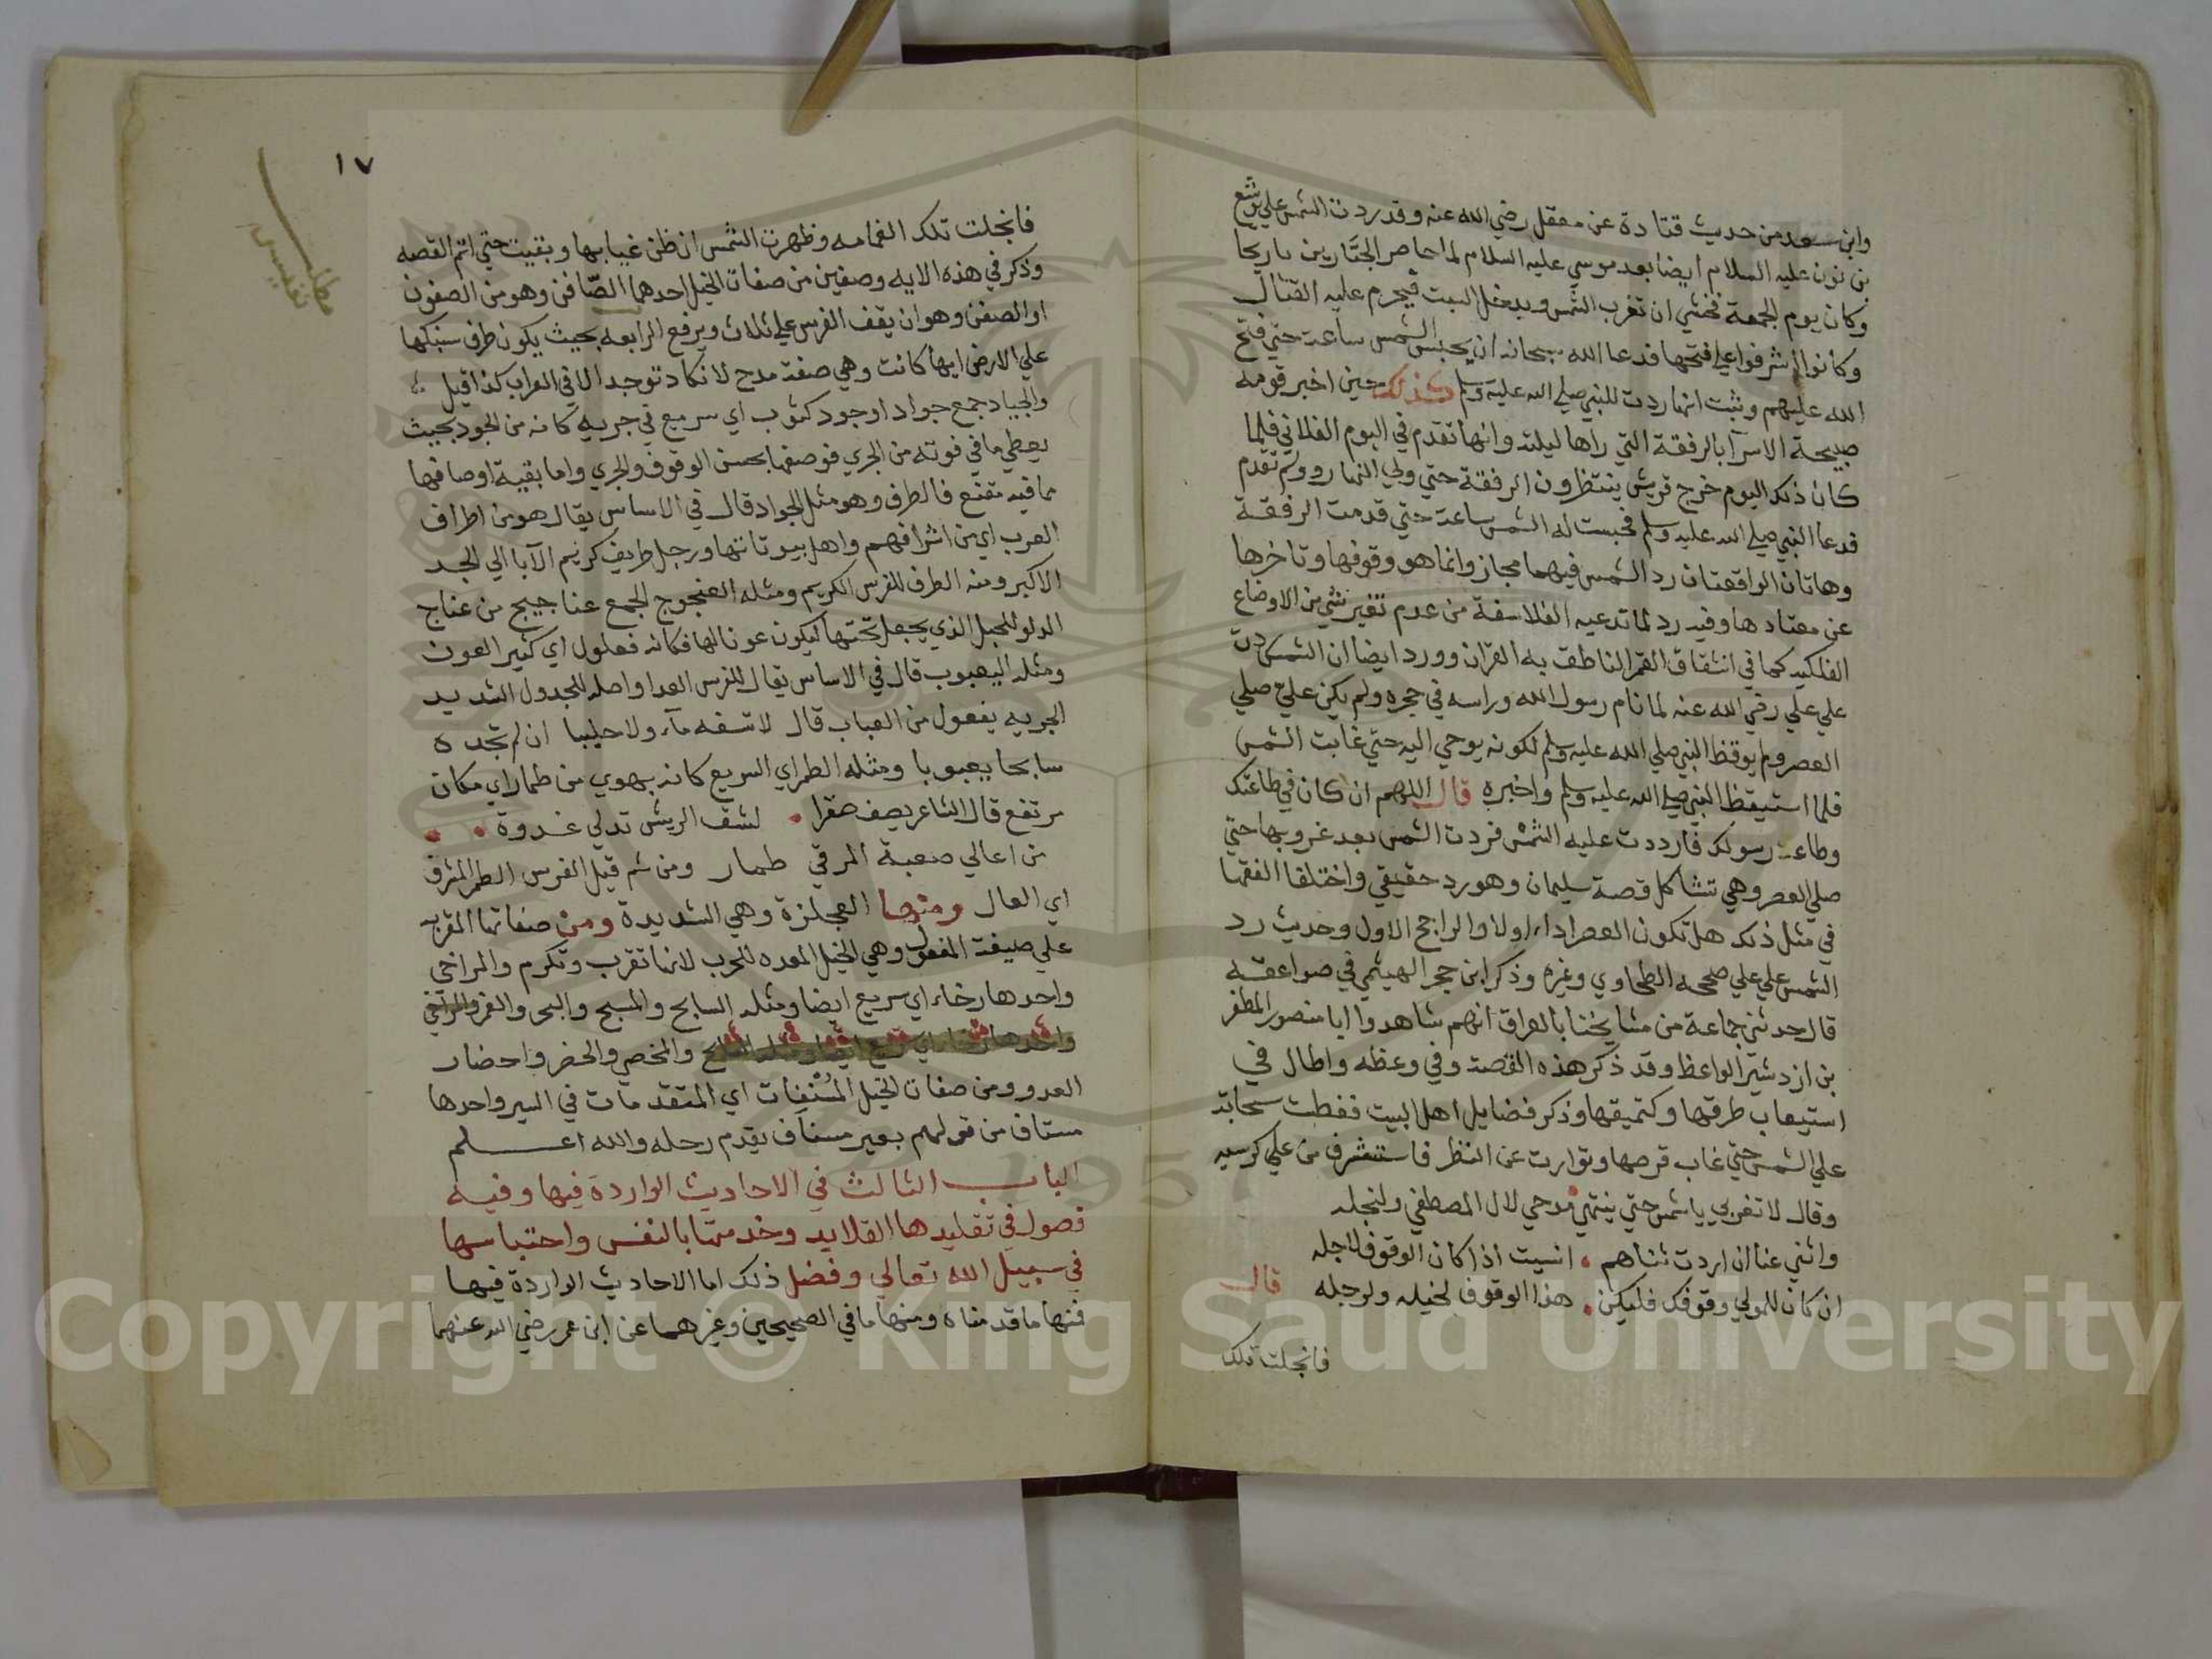 وابن سعد من حديث قتادة عن معقل رضي الله عنه وقد ردت الشمس علي يوشع
بن نون عليه السلام ايضا بعد موسي عليه السلام لما حاصر الجبارين باريحا
وكان يوم الجمعة فخشي ان تغرب الشمس ويدخل السبت فيحرم عليه القتال
وكانوا اشرفوا علي فتحها فدعا الله سبحانه ان يحبس الشمس ساعة حتي فتح
الله عليهم وثبت انها ردت للنبي صلي الله عليه وسلم حين اخبر قومه
صبيحة الاسرآ بالرفقة التي راها ليلته وانها تقدم في اليوم الفلاني فلما
كان ذلك اليوم خرج قريش ينتظرون الرفقة حتي ولي النهار ولم تقدم
فدعا النبي صلي الله عليه وسلم فحبست له الشمس ساعة حتي قدمت الرفقة
وهاتان الواقعتان رد الشمس فيهما مجاز وانما هو وقوفها وتاخرها
عن معتادها وفيه رد لما تدعيه الفلاسفة من عدم تغير شي من الاوضاع
الفلكيه كما في انشقاق القمر الناطق به القران وورد ايضا ان الشمس ردت
علي علي رضي الله عنه لما نام رسول الله وراسه في حجره ولم يكن علي صلي
العصر ولم يوقظ النبي صلي الله عليه وسلم لكونه يوحي اليه حتي غابت الشمس
فلما استيقظ النبي صلي الله عليه وسلم واخبره قال اللهم ان كان في طاعتك
وطاعة رسولك فارددت عليه الشمس فردت الشمس بعد غروبها حتي
صلي العصر وهي تشاكل قصة سليمان وهو رد حقيقي واختلقا الفقها
في مثل ذلك هل تكون العصر اداء اولا والراجح الاول وحديث رد
الشمس علي علي صححه الطحاوي وغيره وذكر ابن حجر الهيثمي في صواعقه
قال حدثني جماعة من مشايخنا بالعراق انهم شاهدوا ابا منصور المظفر
بن ازدشير الواعظ وقد ذكر هذه القصة وفي وعظه واطال في
استيعاب طرقها وكتميقها وذكر فضايل اهل البيت فغطت سحابة
علي الشمس حتي غاب قرصها وتوارت عن النظر فاستشرف من علي كرسيه
وقال لا تغربي يا شمس حتي ينتهي مدحي لال المصطفي ولنجله
واثني عنان ان اردت ثناهم انسيت اذ كان الوقوف لاجله
ان كان للمولي وقوفك فليكن هذا الوقوف لخيله ولرجله قال
فانجلت تلك
١٧
مطلب
نفيس
فانجلت تلك الغمامه وظهرت الشمس ان ظن غيابها وبقيت حتي اتم القصه
وذكر في هذه الايه وصفين من صفات الخيل احدهما الصّافن وهو من الصفون
او الصفن وهو ان يقف الفرس علي ثلاث ويرفع الرابعه بحيث يكون طرف سنبكها
علي الارض ايها كانت وهي صفة مدح لا تكاد توجد الا في العراب كذا قيل
والجياد جمع جواد اوجود كثوب اي سريع في جريه كانه من الجود بحيث
يعطي ما في قوته من الجري فوصفها بحسن الوقوف والجري واما بقية اوصافها
مما فيه مقنع فالطرف وهو مثل الجواد قال في الاساس يقال هو من اطراف
العرب اي من اشرافهم واهل بيوتاتها ورجل طريف كريم الآبا الي الجد
الاكبر ومنه الطرف للفرس الكريم ومثله العنجوج الجمع عناجيج من عناج
الدلو للحبل الذي يجعل تحتها ليكون عونا لها فكانه فعلول اي كثير العون
ومثله اليعبوب قال في الاساس يقال للفرس العدا واصله للجدول الشديد
الجريه يفعول من العباب قال لا تسقه مآء ولا حليبا ان لم تجده
سابحا يعبوبا ومثله الطمر اي السريع كانه يهوي من طمار اي مكان
مرتفع قال الشاعر يصف صقرا لشق الريش تدلي غدوة
من اعالي صعبة المرقي طمار ومن ثم قيل الفرس الطمر المشرف
اي العال ومنها العجلزة وهي الشديدة ومن صفاتها المقربه
علي صيغة المفعول وهي الخيل المعده للحرب لانها تقرب وتكرم والمراخي
واحدها رخاء اي سريع ايضا ومثله السابح والمسبح والبحر والغمر
والمخصي والحضر واحضار
العدو ومن صفات الخيل المُسْنِفات اي المتقدمات في السير واحدها
مسناف من قولهم بعير مسناف يقدم رحله والله اعلم
الباب الثالث في الاحاديث الواردة فيها وفيه
فصول في تقليدها القلايد وخدمتها بالنفس واحتباسها
في سبيل الله تعالي وفضل ذلك اما الاحاديث الواردة فيها
فمنها ما قدمناه ومنها ما في الصحيحين وغيرهما عن ابن عمر رضي الله عنهما
Copyright © King Saud University
1957